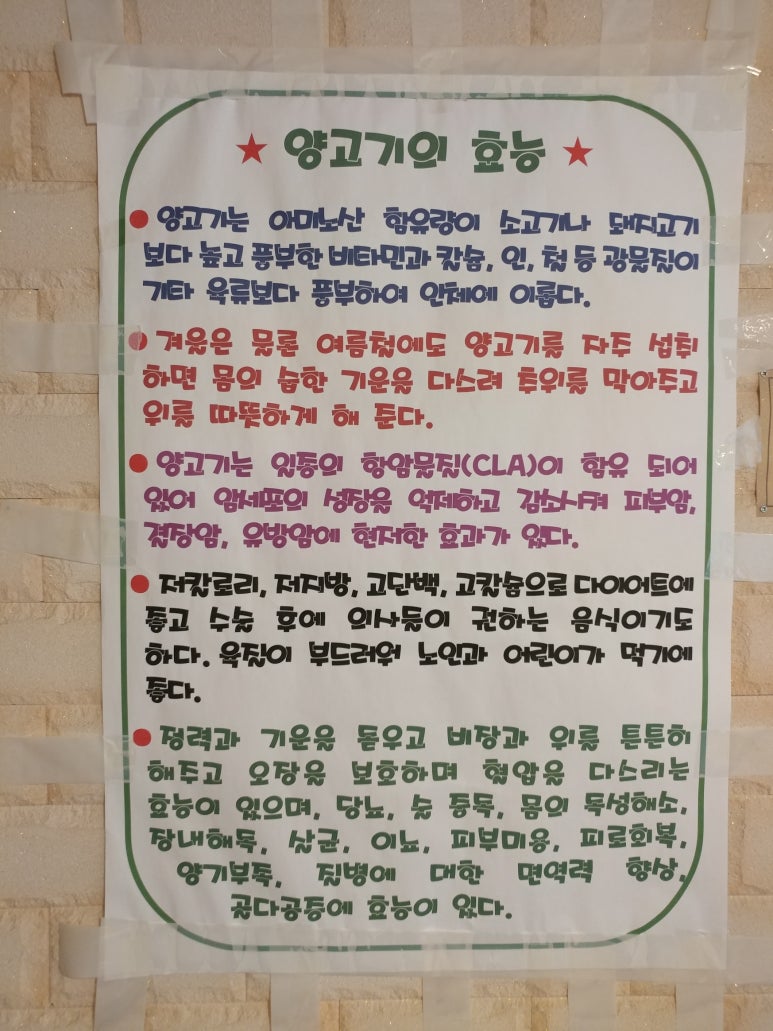 ★ 양고기의 효능 ★
● 양고기는 아미노산 함유량이 소고기나 돼지고기
보다 높고 풍부한 비타민과 칼슘, 인, 철 등 광물질이
기타 육류보다 풍부하여 인체에 이롭다.
● 겨울은 물론 여름철에도 양고기를 자주 섭취
하면 몸의 습한 기운을 다스려 추위를 막아주고
위를 따뜻하게 해 준다.
● 양고기는 일종의 항암물질(CLA)이 함유 되어
있어 암세포의 성장을 억제하고 감소시켜 피부암,
결장암, 유방암에 현저한 효과가 있다.
● 저칼로리, 저지방, 고단백, 고칼슘으로 다이어트에
좋고 수술 후에 의사들이 권하는 음식이기도
하다. 육질이 부드러워 노인과 어린이가 먹기에
좋다.
● 정력과 기운을 돋우고 비장과 위를 튼튼히
해주고 오장을 보호하며 혈압을 다스리는
효능이 있으며, 당뇨, 술 중독, 몸의 독성해소,
장내해독, 살균, 이뇨, 피부미용, 피로회복,
양기부족, 질병에 대한 면역력 향상,
골다공증에 효능이 있다.